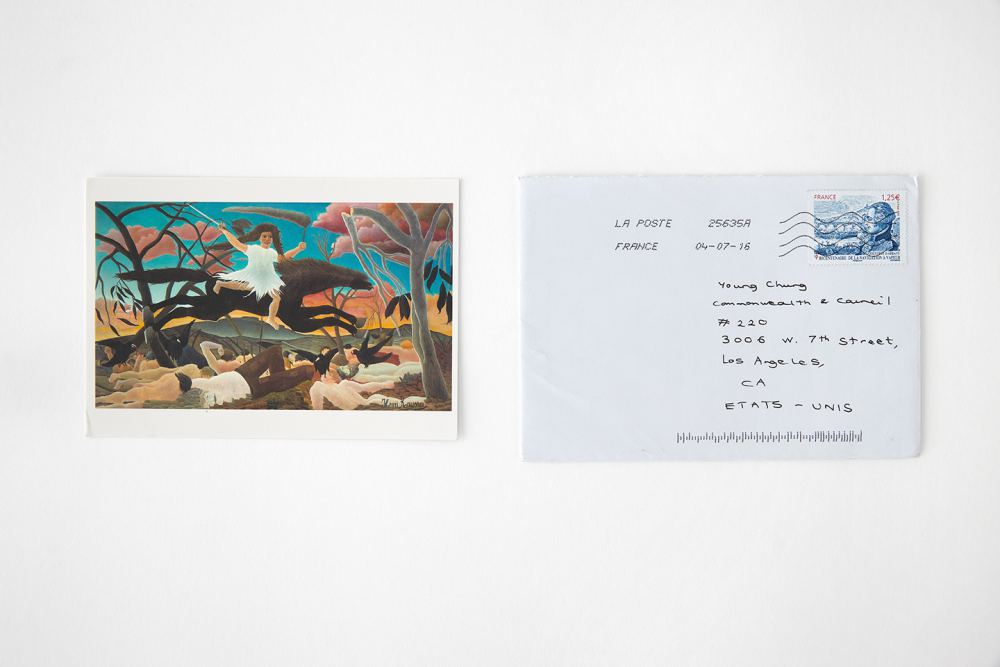 Henri Rousseau
LA POSTE 25635A
FRANCE 04-07-16
FRANCE 1,25€
BICENTENAIRE DE LA NAVIGATION À VAPEUR
Young Chung
Commonwealth & Council
# 220
3006 W. 7th Street,
Los Angeles,
CA
ETATS - UNIS